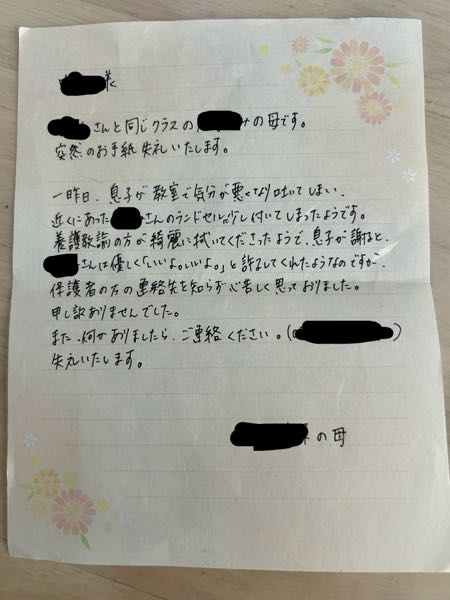 様
さんと同じクラスの の母です。
突然のお手紙失礼いたします。
一昨日、息子が教室で気分が悪くなり吐いてしまい、
近くにあった さんのランドセルに少し付いてしまったようです。
養護教諭の方が綺麗に拭いてくださったようで、息子が謝ると、
さんは優しく「いいよ。いいよ。」と許してくれたようなのですが、
保護者の方の連絡先を知らず心苦しく思っておりました。
申し訳ありませんでした。
また、何かありましたら、ご連絡ください。( )
失礼いたします。
の母